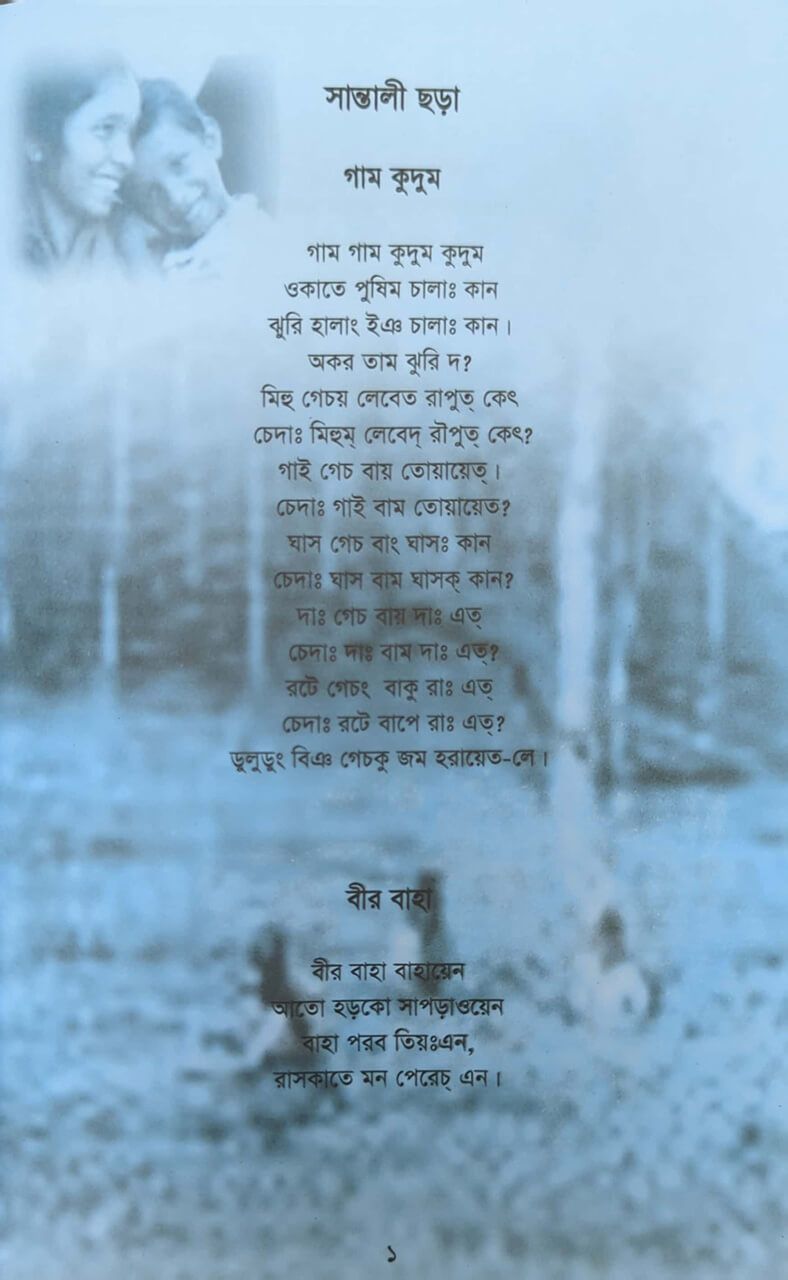 সান্তালী ছড়া
গাম কুদুম
গাম গাম কুদুম কুদুম
ওকাতে পুষিম চালাঃ কান
ঝুরি হালাং ইঞ চালাঃ কান।
অকর তাম ঝুরি দ?
মিহু গেচয় লেবেত রাপুত্ কেৎ
চেদাঃ মিহুম্ লেবেদ্ রৗপুত্ কেৎ?
গাই গেচ বায় তোয়ায়েত্।
চেদাঃ গাই বাম তোয়ায়েত?
ঘাস গেচ বাং ঘাসঃ কান
চেদাঃ ঘাস বাম ঘাসক্ কান?
দাঃ গেচ বায় দাঃ এত্
চেদাঃ দাঃ বাম দাঃ এত্?
রটে গেচং বাকু রাঃ এত্
চেদাঃ রটে বাপে রাঃ এত্?
ডুলুডুং বিঞ গেচকু জম হরায়েত-লে।
বীর বাহা
বীর বাহা বাহায়েন
আতো হড়কো সাপড়াওয়েন
বাহা পরব তিয়ঃএন,
রাসকাতে মন পেরেচ্ এন।
১